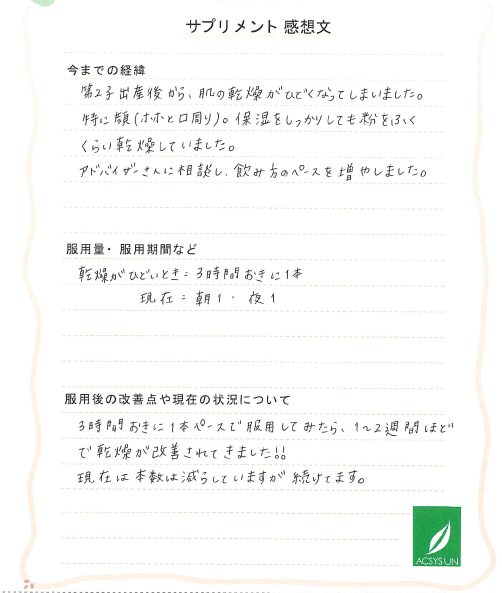 サプリメント 感想文
今までの経緯
第2子出産後から、肌の乾燥がひどくなってしまいました。
特に顔(ホホと口周り)。保湿をしっかりしても粉をふく
くらい乾燥していました。
アドバイザーさんに相談し、飲み方のペースを増やしました。
服用量・服用期間など
乾燥がひどいとき：3時間おきに1本
現在：朝1・夜1
服用後の改善点や現在の状況について
3時間おきに1本ペースで服用してみたら、1～2週間ほど
で乾燥が改善されてきました!!
現在は本数は減らしていますが続けてます。
ACSYSUN